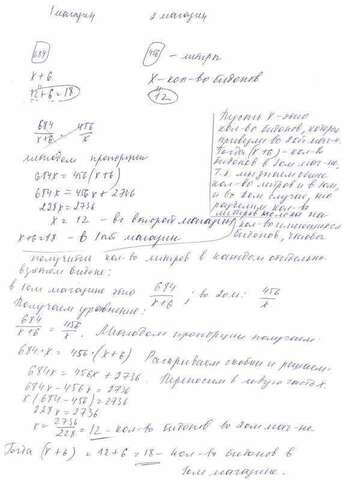 1 магазин 2 магазин
684 456 - литры
x+6 x-кол-во бидонов
12+6=18 12
684/x+6 = 456/x
методом пропорции
684x = 456(x+6)
684x = 456x + 2736
228x = 2736
x = 12 - во втором магазине
x+6=18 - в 1ом магазине
Пусть x-это
кол-во бидонов, которые
привезли во 2ой маг-н.
Тогда (x+6)-кол-во
бидонов в 1ом маг-не.
Т.к. мы знаем общее
кол-во литров и в 1ом,
и во 2ом случае, то
разделим кол-во
литров молока на
кол-во имеющихся
бидонов, чтобы
получить кол-во литров в каждом отдельно
взятом бидоне:
в 1ом магазине это 684/x+6 ; во 2ом: 456/x
Получаем уравнение:
684/x+6 = 456/x. Методом пропорции получаем:
684·x = 456·(x+6) Раскрываем скобки и решаем.
684x = 456x + 2736. Переносим в левую часть x.
684x - 456x = 2736
x(684-456) = 2736
228x = 2736
x = 2736/228 = 12 - кол-во бидонов во 2ом маг-не.
Тогда (x+6) = 12+6 = 18 - кол-во бидонов в
1ом магазине.